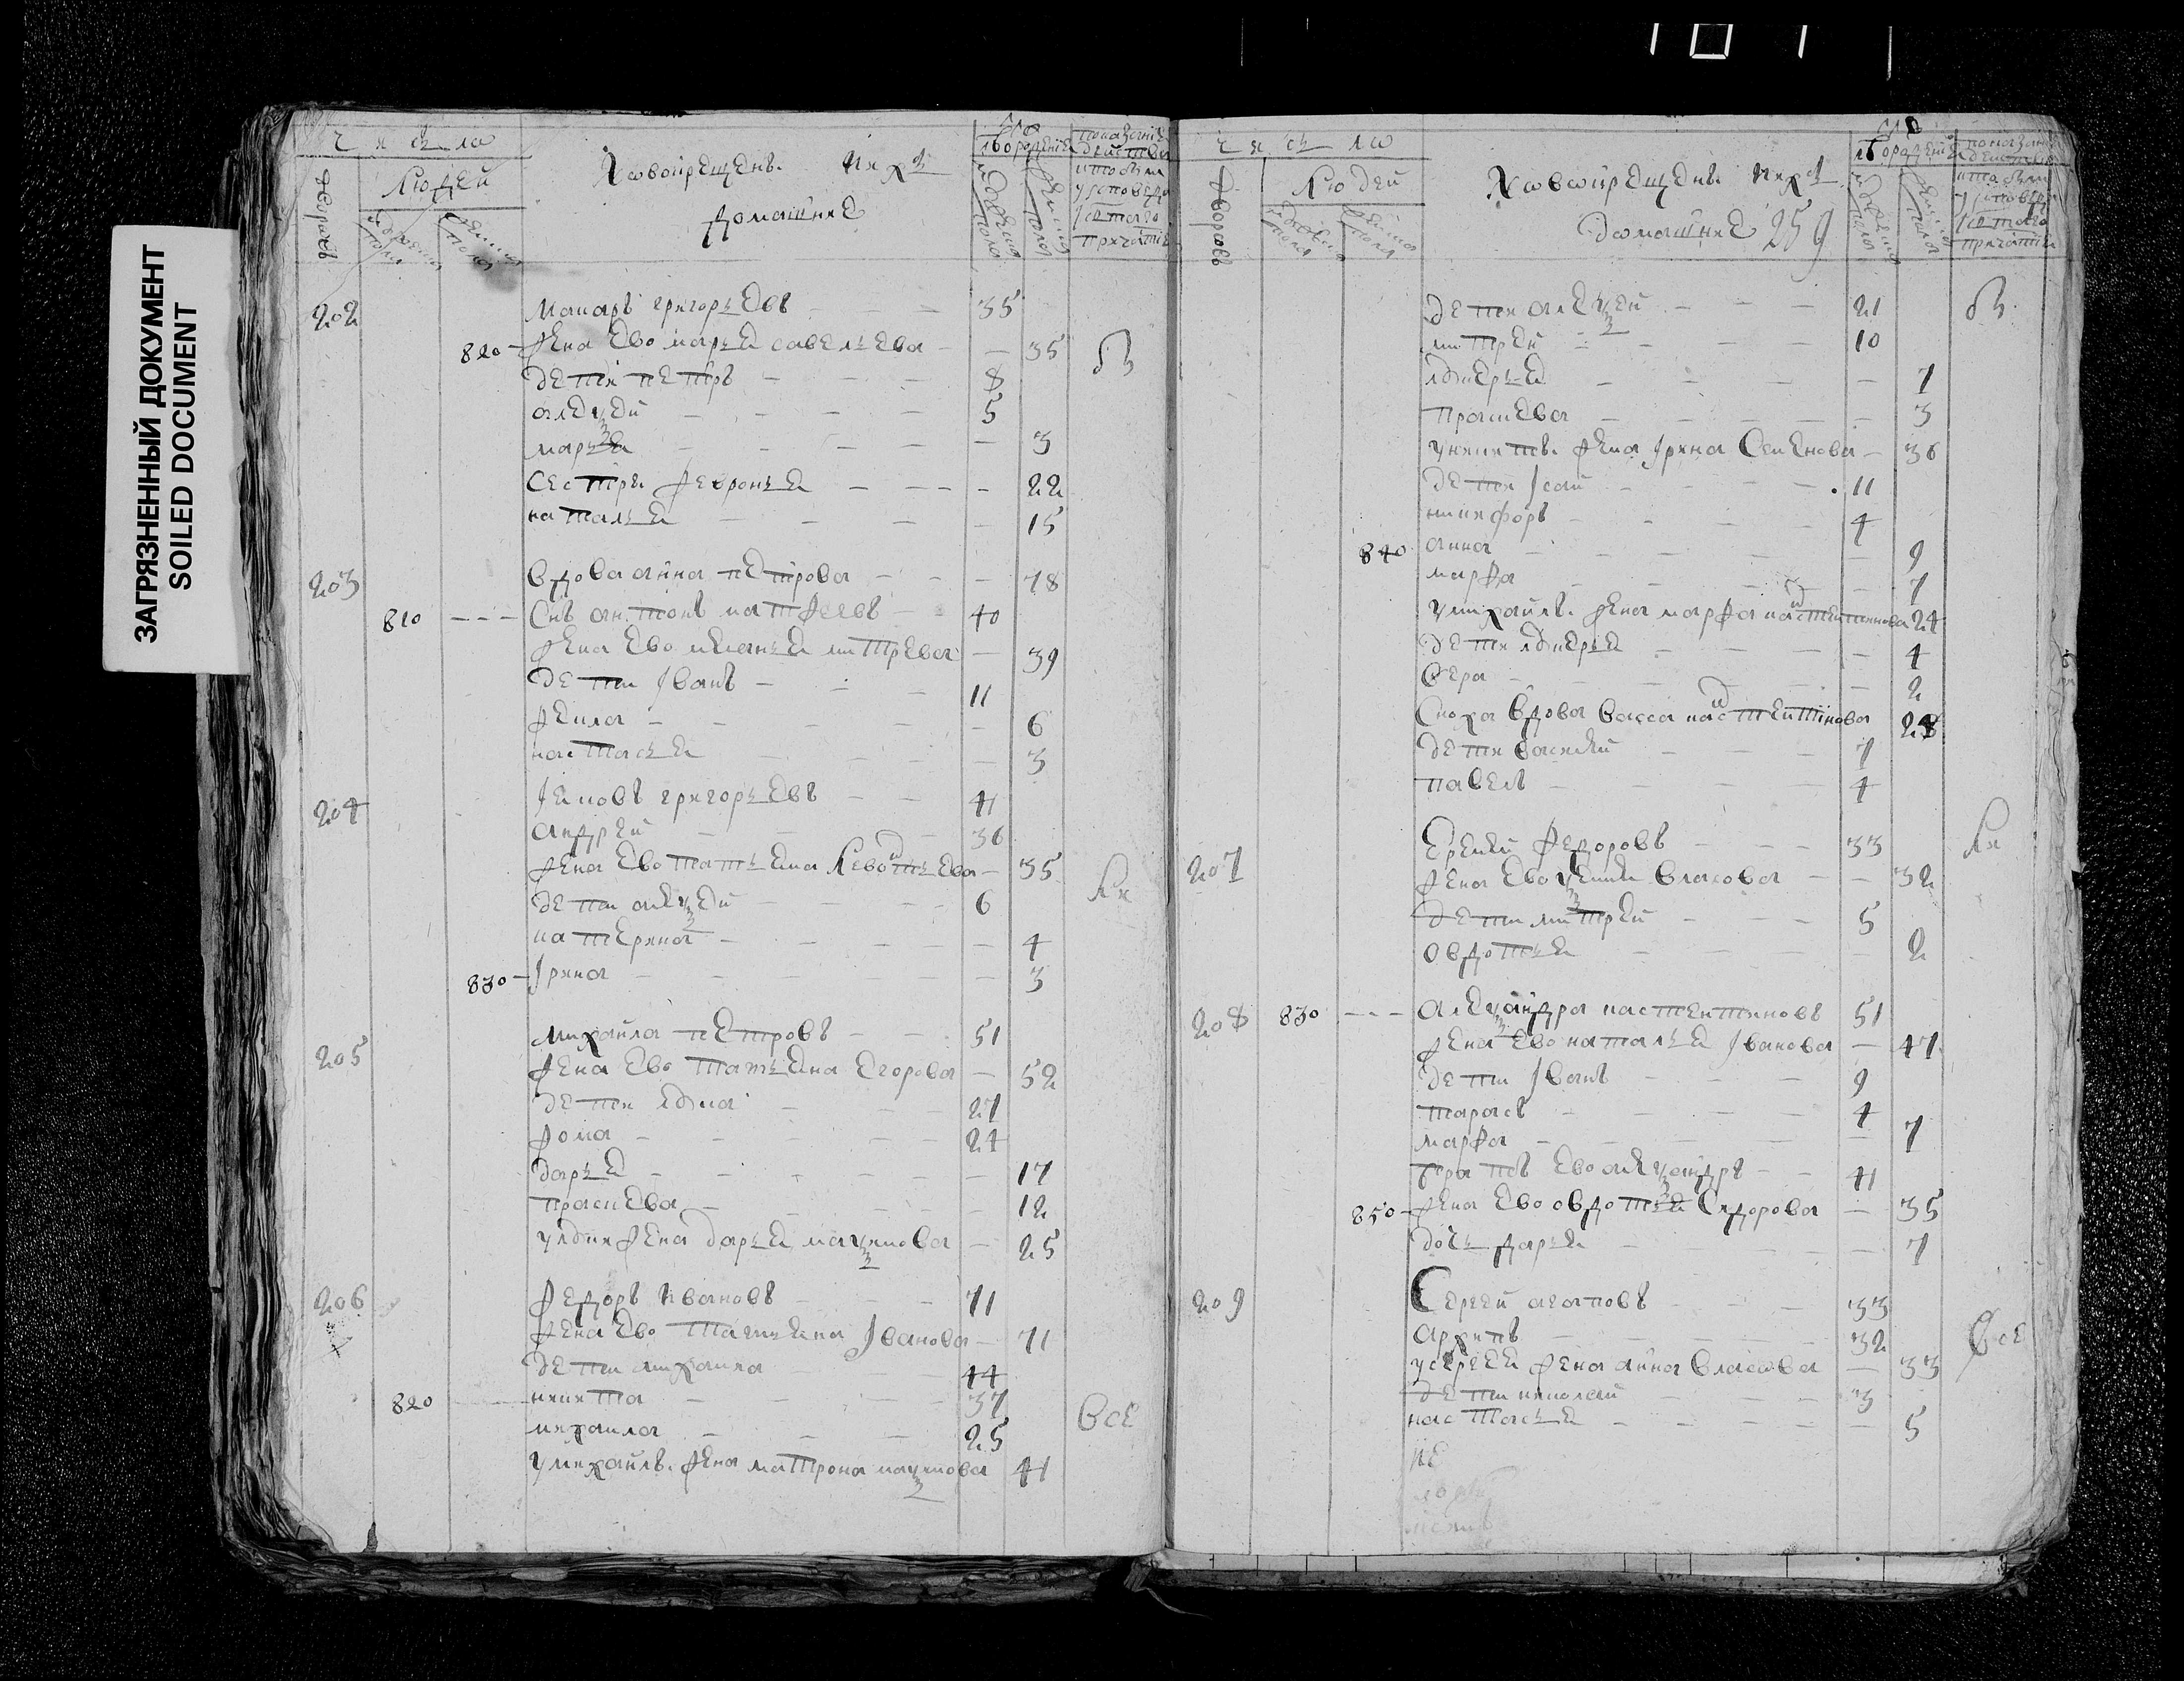 ЗАГРЯЗНЕННЫЙ ДОКУМЕНТ
SOILED DOCUMENT
Числа
Людей
дворовъ
Новокрещены ихъ
домашние
202 Макаръ григорьевъ 35
820 жена ево марья савельева 35
дети петръ 8
алеѯей 5
марья 3
сестры февронья 22
наталья 15
203 вдова анна петрова 78
810 Снъ антонъ матфеевъ 40
жена ево митрева 39
дети Iванъ 11
фекла 6
настасья 3
204 Iяковъ григорьевъ 41
андрей 36
жена ево татьяна Левонтьева 35
дети алеѯей 6
катерина 4
830 Iрина 3
205 михаила петровъ 51
жена ево татьяна егорова 52
дети илья 27
фома 24
дарья 17
прасковья 12
у ильи жена дарья маѯимова 25
206 федоръ Ивановъ 71
жена ево татьяна Iванова 71
дети михаила 44
820 никита 37
михаила 25 Все
у михаилы жена матрона маѯимова 41
Числа
Людей
дворовъ
Новокрещены ихъ
домашние 259
дети алеѯей 21
митрей 10
лукерья 7
прасковья 3
у никиты жена Iрина Семенова 36
дети Iсай 11
никифоръ 4
840 анна 9
марфа 7
у михаилы жена марфа костентинова 24
дети лукерья 4
Вера 2
Сноха вдова васса костентинова 28
дети василей 7
павелъ 4
207 Еремей федоровъ 33
жена ево власова 32
дети митрей 5
овдотья 2
208 830 Алеѯандра костентиновъ 51
жена ево наталья Iванова 47
дети Iванъ 9
тарасъ 4
марфа 7
братъ ево алеѯандръ 41
850 жена ево овдотья Сидорова 35
дочь дарья 7
209 Сергей агаповъ 33
архипъ 32 Все
у сергея жена анна власова 33
дети николай 3
настасья 5